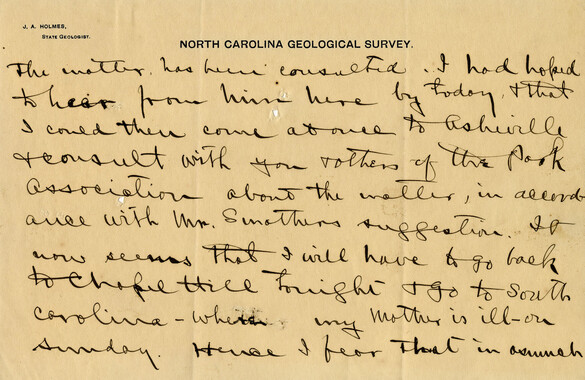 J. A. HOLMES,
STATE GEOLOGIST.
NORTH CAROLINA GEOLOGICAL SURVEY.
The matter, has been consulted. I had hoped
to hear from him here by today, & that
I could then come at once to Asheville
& consult with you & others of the Park
Association about the matter, in accord-
ance with Mr. Smathers suggestion. It
now seems that I will have to go back
to Chapel Hill tonight & go to South
Carolina - where my Mother is ill - on
Sunday. Hence I fear that in asmuch